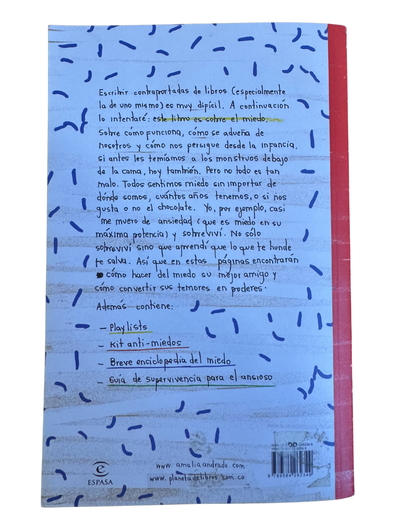 Escribir contraportadas de libros (especialmente
la de uno mismo) es muy difícil. A continuación
lo intentaré: este libro es sobre el miedo.
Sobre cómo funciona, cómo se adueña de
nosotros y cómo nos persigue desde la infancia,
si antes les temíamos a los monstruos debajo
de la cama, hoy también. Pero no todo es tan
malo. Todos sentimos miedo sin importar de
dónde somos, cuántos años tenemos, o si nos
gusta o no el chocolate. Yo, por ejemplo, casi
me muero de ansiedad (que es miedo en su
máxima potencia) y sobreviví. No sólo
sobreviví sino que aprendí que lo que te hunde
te salva. Así que en estas páginas encontrarán
cómo hacer del miedo su mejor amigo y
cómo convertir sus temores en poderes.
Además contiene:
– Playlists
– Kit anti-miedos
– Breve enciclopedia del miedo
– Guía de supervivencia para el ansioso
www.amaliaandrade.com
www.planetadelibros.com.co
e
ESPASA